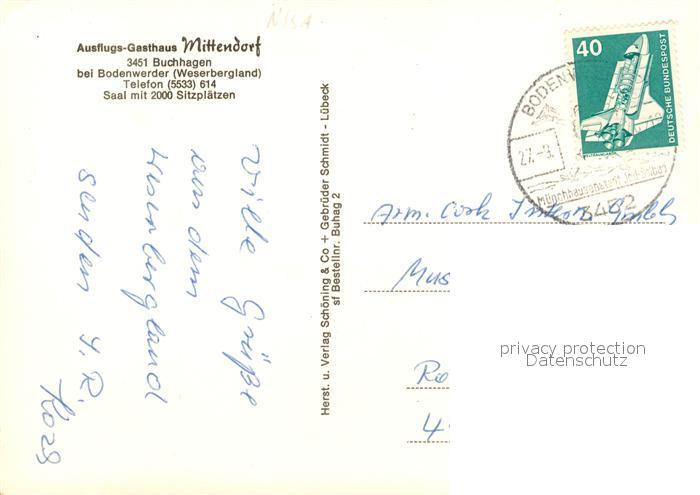 Ausflugs-Gasthaus Mittendorf
3451 Buchhagen
bei Bodenwerder (Weserbergland)
Telefon (5533) 614
Saal mit 2000 Sitzplätzen
Viele Grüße
aus dem
Weserbergland
senden
Herst. u. Verlag Schöning & Co + Gebrüder Schmidt - Lübeck
sf Bestellnr. Buhag 2
40
DEUTSCHE BUNDESPOST
BODENW
27.-9.
Münchhausenstadt
3452
GmbH
Mus
Ro
4
privacy protection
Datenschutz